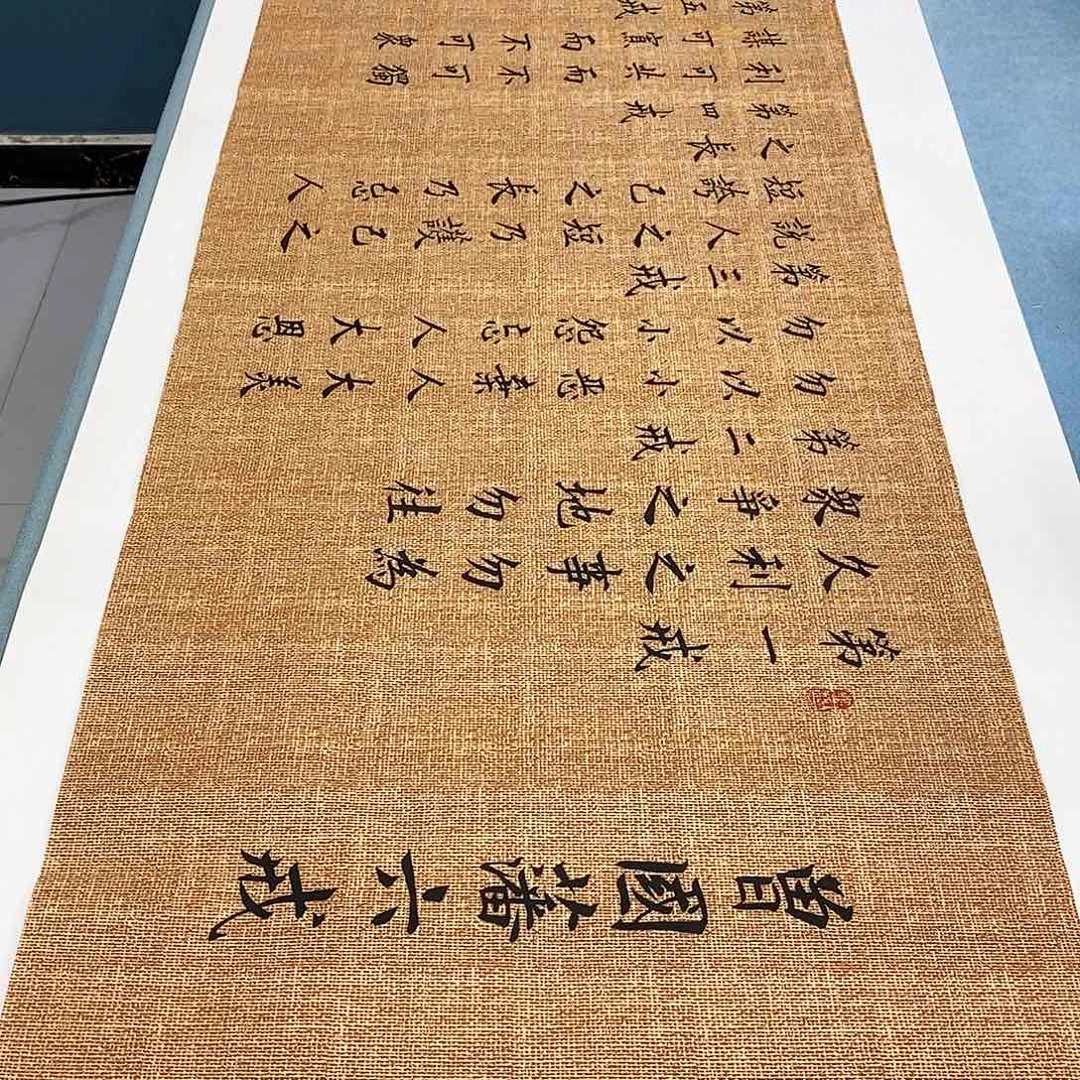 曾國藩六戒
第一戒
久利之事勿為
衆爭之地勿往
第二戒
勿以小惡棄人大美
勿以小怨忘人大恩
第三戒
説人之短乃護己之
短誇己之長乃忌人
之長
第四戒
利可共而不可獨
謀可寡而不可衆
第五戒